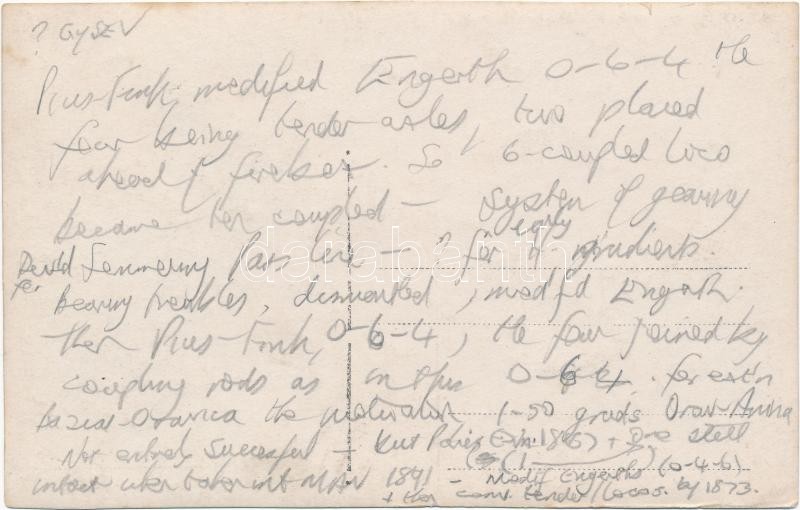 ? GySEV
Pius-Fink, modified Engerth 0-6-4 the
four being tender axles, two placed
ahead of firebox. So 6-coupled loco
became ten coupled - system of gearing
Devel'd Semmering Pass line - ? for early gradients.
for
bearing troubles, dismantled, modif'd Engerth
then Pius-Fink, 0-6-4, the four joined by
coupling rods as in this 0-6-4. for
the 1-50 grads Orav-Anina
Not entirely successful - but Paris Exn. 1867 + one still
intact when taken into MAV 1891 - Modif Engerths (0-4-6)
+ conv. tender/locos. by 1873.
darabanth